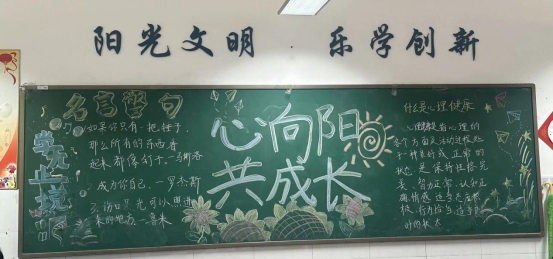 阳光文明 乐学创新
名言警句
1. 如果你只有一把锤子,
那么所有的东西看
起来都像钉子。—马斯洛
2. 成为你自己。—罗杰斯
3. 伤口是光可以进
来的地方。—鲁米
心向阳
共成长
什么是心理健康
心理健康是指心理的
各个方面及活动过程处
于一种良好或正常的
状态是保持性格完
美、智力正常、认知正
确、情感适当、态度积
极、行为恰当、适应良
好的状态